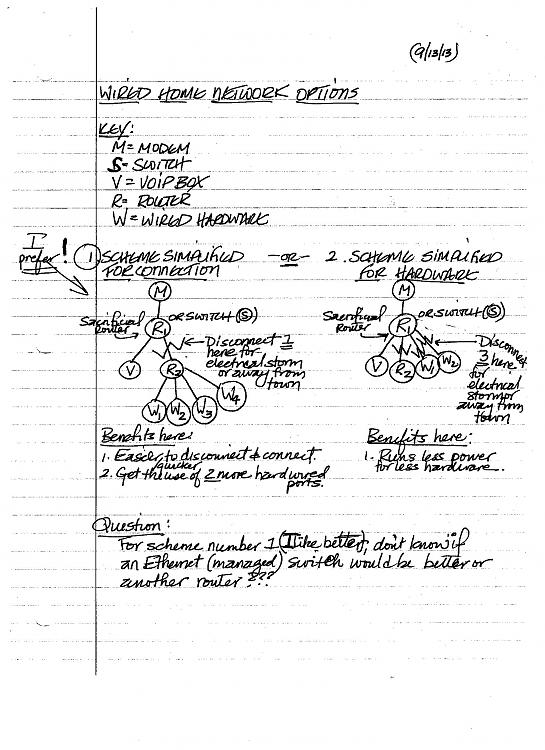 (9/13/13)
WIRED HOME NETWORK OPTIONS
KEY:
M= MODEM
S= SWITCH
V= VOIP BOX
R= ROUTER
W= WIRED HARDWARE
I prefer!
1 SCHEME SIMPLIFIED
FOR CONNECTION
-OR-
2. SCHEME SIMPLIFIED
FOR HARDWARE
M
Sacrificial
Router
R1
OR SWITCH (S)
Disconnect 1
here for
electrical storm
or away from
town
V
R2
W1 W2 W3 W4
M
Sacrificial
Router
R1
OR SWITCH (S)
Disconnect
3 here
for
electrical
storm or
away from
town
V R2 W1 W2
Benefits here:
1. Easier, quicker to disconnect & connect.
2. Get the use of 2 more hard wired
ports.
Benefits here:
1. Runs less power
for less hardware.
Question:
For scheme number 1 (I like better), don't know if
an Ethernet (managed) switch would be better or
another router???